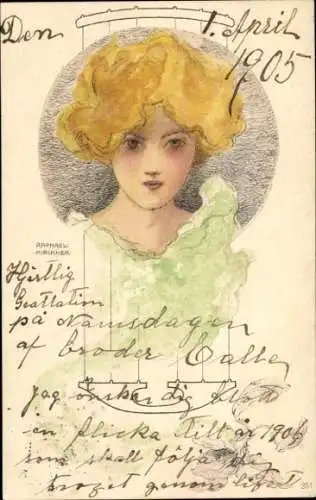 Den 1. April
1905
RAPHAEL
KIRCHNER
Hjertlig
Grattation
på Namsdagen
af broder Calle
Jag önskar dig
en flicka Till år 1906
som skall följa dig
troget genom lifvet